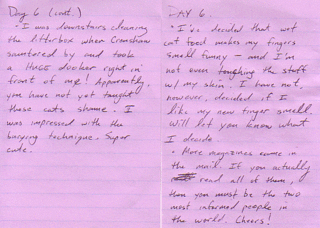 Day 6 (cont.)
• I was downstairs cleaning
the litterbox when Crenshaw
sauntered by and took
a HUGE dooker right in
front of me! Apparently,
you have not yet taught
these cats shame. I
was impressed with the
burying technique. Super
cute.
DAY 6
• I've decided that wet
cat food makes my fingers
smell funny – and I'm
not even touching the stuff
w/ my skin. I have not,
however, decided if I
like my new finger smell.
Will let you know what
I decide
• More magazines came in
the mail. If you actually
read all of them,
then you must be the two
most informed people in
the world. Cheers!